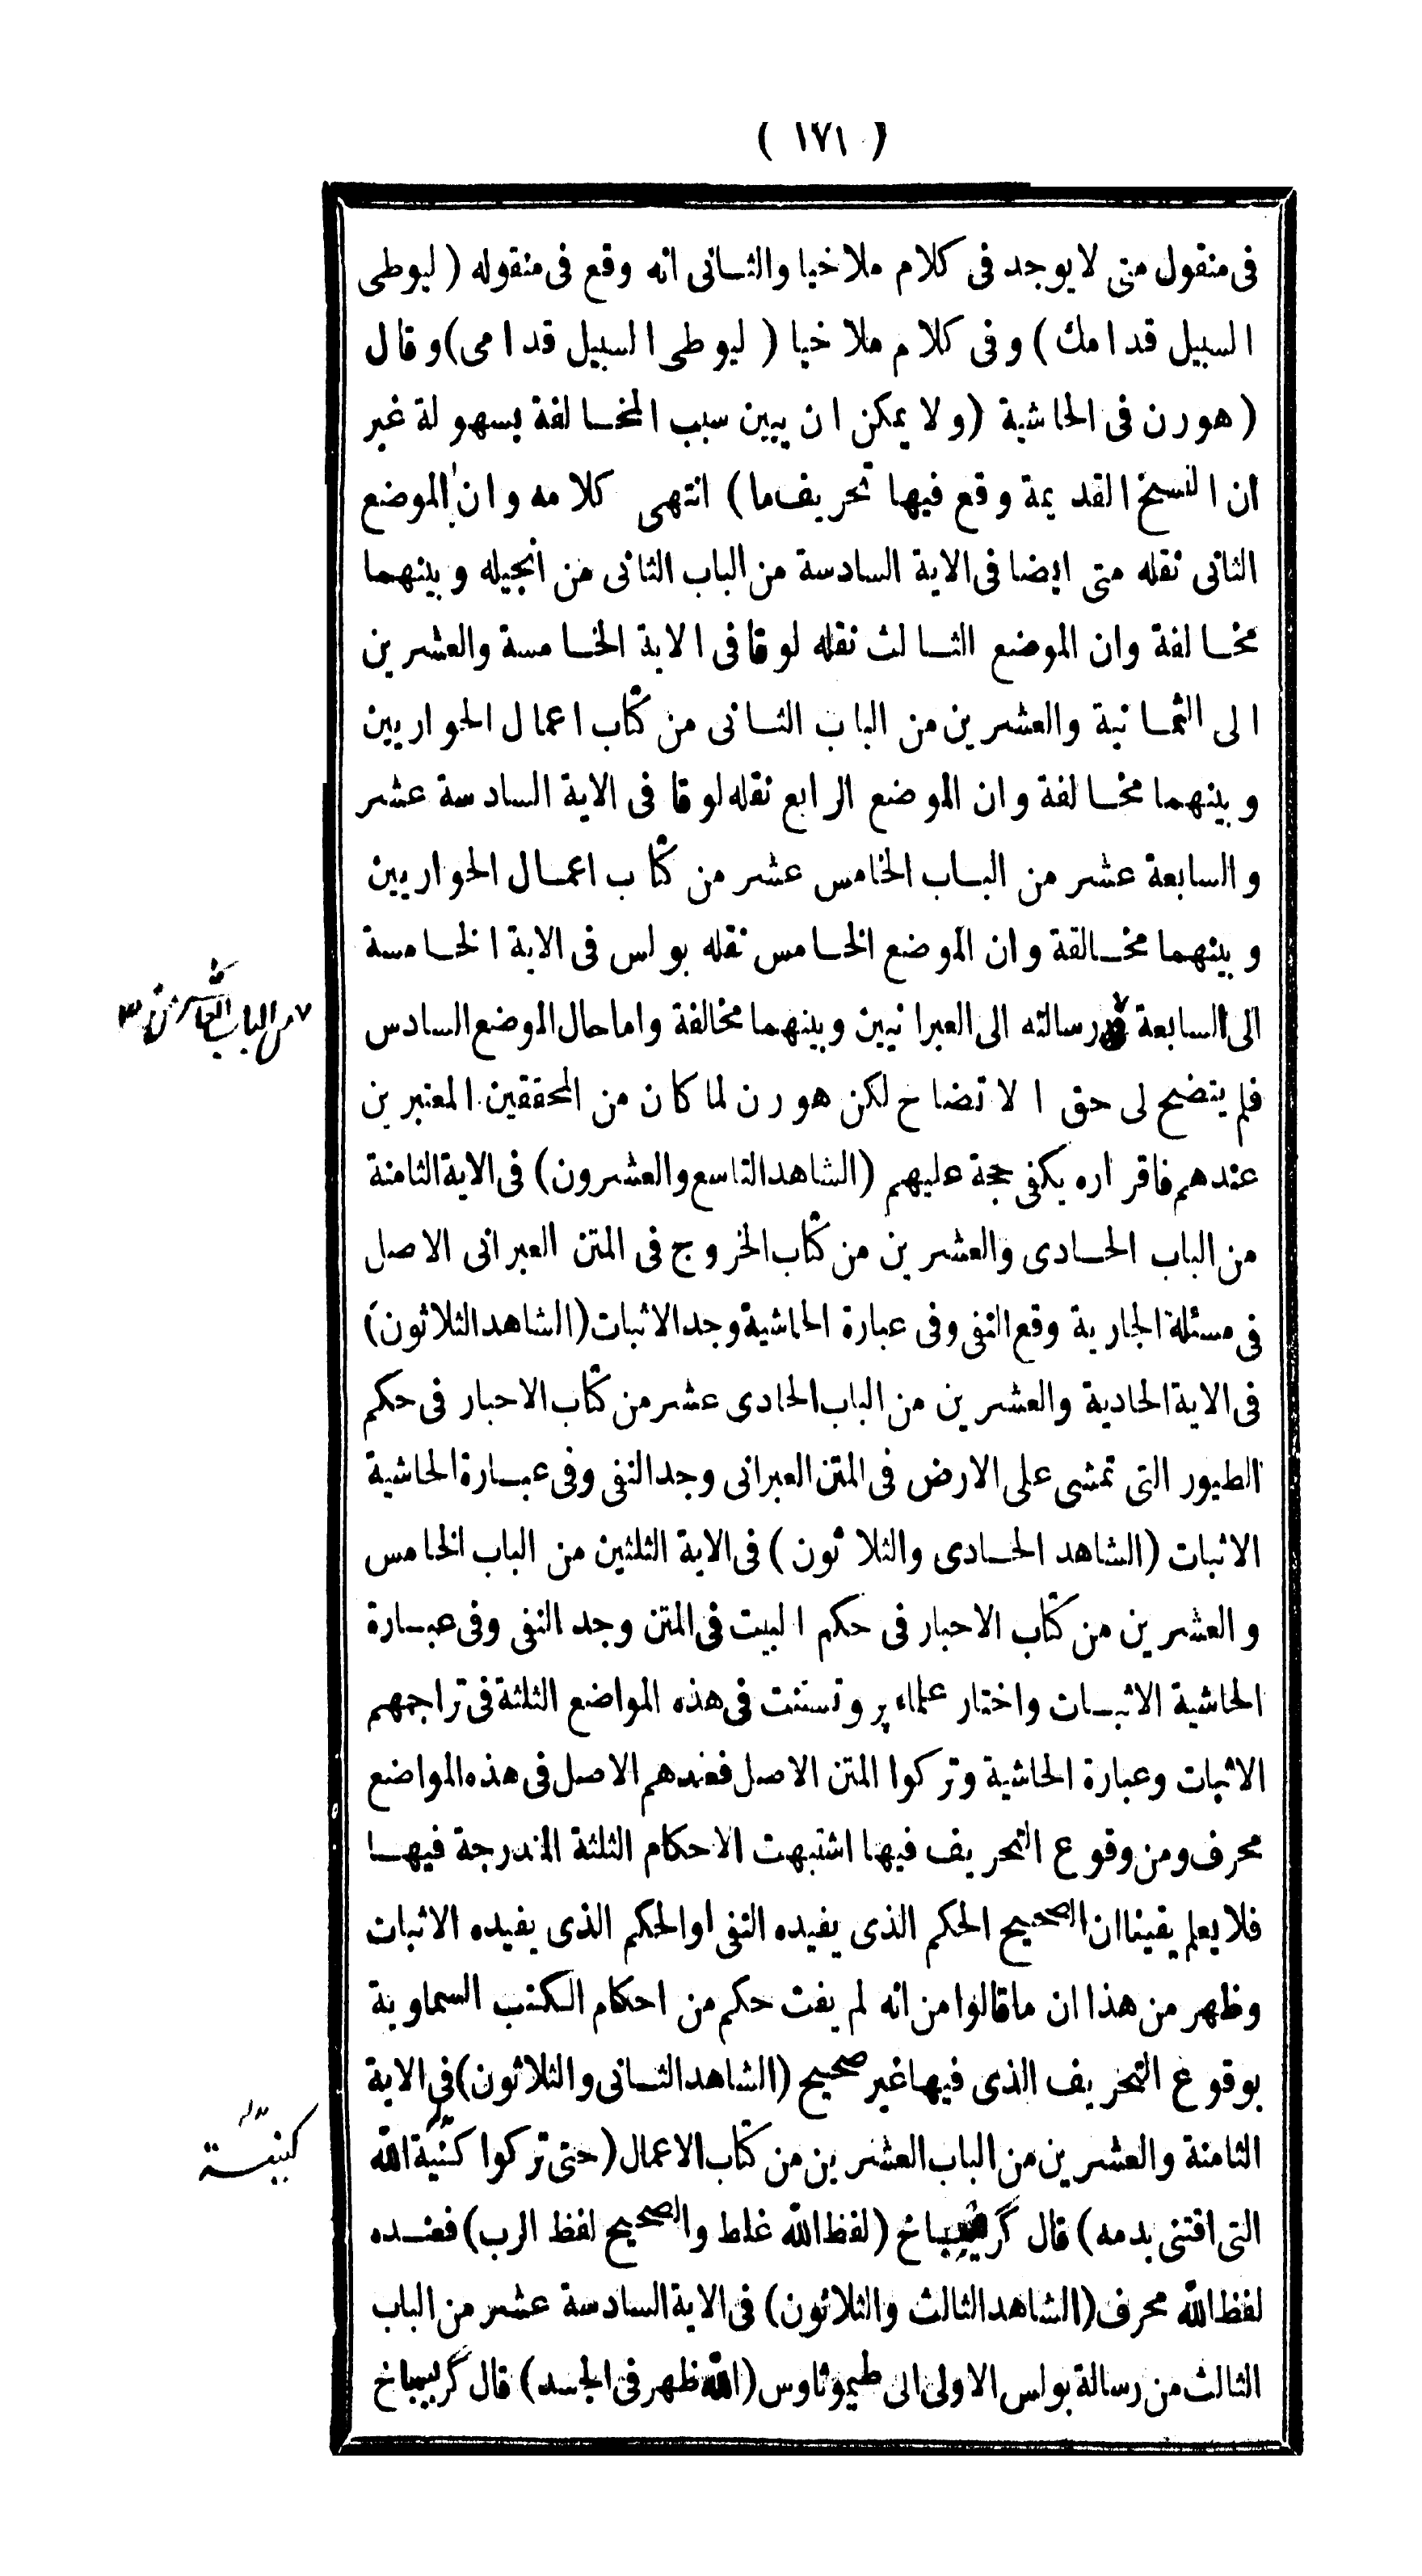 ( ١٧١ )
فى منقول متى لا يوجد فى كلام ملاخيا والثانى انه وقع فى منقوله ( ليوطى
السبيل قدامك ) وفى كلام ملاخيا ( ليوطى السبيل قدامى ) وقال
( هورن فى الحاشية ( ولا يمكن ان يبين سبب المخالفة بسهولة غير
ان النسخ القديمة وقع فيها تحريف ما ) انتهى كلامه وان الموضع
الثانى نقله متى ايضا فى الاية السادسة من الباب الثانى من انجيله وبينهما
مخالفة وان الموضع الثالث نقله لوقا فى الاية الخامسة والعشرين
الى الثمانية والعشرين من الباب الثانى من كتاب اعمال الحواريين
وبينهما مخالفة وان الموضع الرابع نقله لوقا فى الاية السادسة عشر
والسابعة عشر من الباب الخامس عشر من كتاب اعمال الحواريين
وبينهما مخالفة وان الموضع الخامس نقله بولس فى الاية الخامسة
الى السابعة رسالته الى العبرانيين وبينهما مخالفة واما حال الموضع السادس
من الباب العاشر من
فلم يتضح لى حق الاتضاح لكن هورن لما كان من المحققين المعتبرين
عندهم فاقراره يكفى حجة عليهم (الشاهد التاسع والعشرون) فى الاية الثامنة
من الباب الحادى والعشرين من كتاب الخروج فى المتن العبرانى الاصل
فى مسئلة الجارية وقع النفى وفى عبارة الحاشية وجد الاثبات (الشاهد الثلاثون)
فى الاية الحادية والعشرين من الباب الحادى عشر من كتاب الاحبار فى حكم
الطيور التى تمشى على الارض فى المتن العبرانى وجد النفى وفى عبارة الحاشية
الاثبات (الشاهد الحادى والثلاثون ) فى الاية الثلثين من الباب الخامس
والعشرين من كتاب الاحبار فى حكم البيت فى المتن وجد النفى وفى عبارة
الحاشية الاثبات واختار علماء پروتستنت فى هذه المواضع الثلثة فى تراجمهم
الاثبات وعبارة الحاشية وتركوا المتن الاصل فعندهم الاصل فى هذه المواضع
محرف ومن وقوع التحريف فيها اشتبهت الاحكام الثلثة المندرجة فيها
فلا يعلم يقينا ان الصحيح الحكم الذى يفيده النفى او الحكم الذى يفيده الاثبات
وظهر من هذا ان ما قالوا من انه لم يفت حكم من احكام الكتب السماوية
بوقوع التحريف الذى فيها غير صحيح (الشاهد الثانى والثلاثون) فى الاية
الثامنة والعشرين من الباب العشرين من كتاب الاعمال (حتى تركوا كنية الله
كنيسة
التى اقتنى بدمه ) قال كريسباخ (لفظ الله غلط والصحيح لفظ الرب) فعنده
لفظ الله محرف (الشاهد الثالث والثلاثون) فى الاية السادسة عشر من الباب
الثالث من رسالة بولس الاولى الى طيموثاوس (الله ظهر فى الجسد) قال كريسباخ